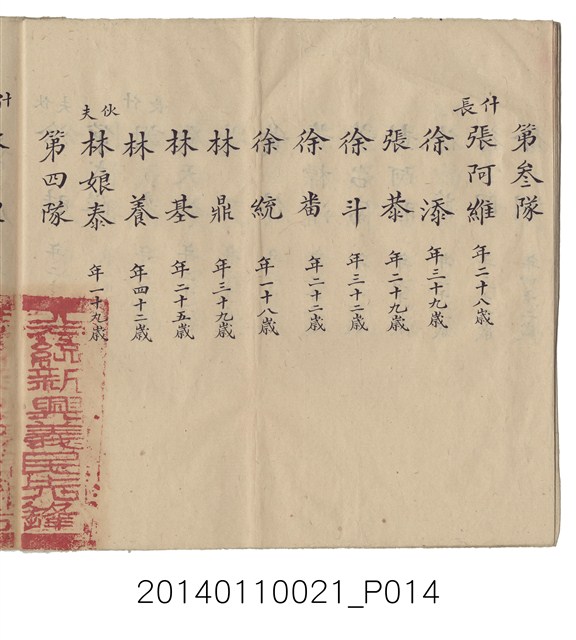 第叁隊
什長 張阿維 年二十八歲
徐添 年三十九歲
張恭 年二十九歲
徐斗 年三十二歲
徐畨 年二十二歲
徐統 年一十八歲
林鼎 年三十九歲
林基 年二十五歲
林養 年四十二歲
伙夫 林娘泰 年一十九歲
第四隊
新興義民先鋒
什
20140110021_P014